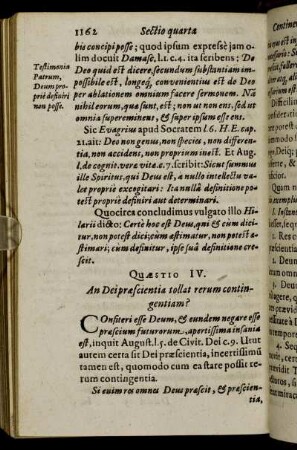 1162 Sectio quarta
bis concipi posse; quod ipsum expressè jam o-
lim docuit Damasc, l. 1. c. 4. ita scribens: De
Deo quid est dicere, secundum substantiam im-
possibile est, longeq́; convenientius est de Deo
per ablationem omnium facere sermonem. Ni-
hil eorum, quæ sunt, est; non ut non ens. sed ut
omnia supereminens, & super ipsum esse ens.
Testimonia
Patrum,
Deum pro-
priè definiri
non posse.
Sic Evagrius apud Socratem l. 6. H. E. cap.
21. ait: Deo non genus, non species, non differen-
tia, non accidens, non proprium inest. Et Aug.
l. de cognit. vera vitæ c. 7. scribit: Sicut summus
ille Spiritus, qui Deus est, à nullo intellectu va-
let propriè excogitari: Ita nullâ definitione po-
test propriè definiri aut determinari.
Quocirca concludimus vulgato illo Hi-
larii dicto: Certè hoc est Deus, qui & cùm dici-
tur, non potest dici; cùm æstimatur, non potest æ-
stimari; cùm definitur, ipse suâ definitione cre-
scit.
QUÆSTIO IV.
An Dei præscientia tollat rerum contin-
gentiam?
Confiteri esse Deum, & eundem negare esse
præscium futurorum, apertissima insania
est, inquit August. l. 5. de Civit. Dei c. 9. Ut ut
autem certa sit Dei præscientia, incertissimũ
tamen est, quomodo cum ea stare possit re-
rum contingentia.
Si enim res omnes Deus præscit, & præscien-
tia,